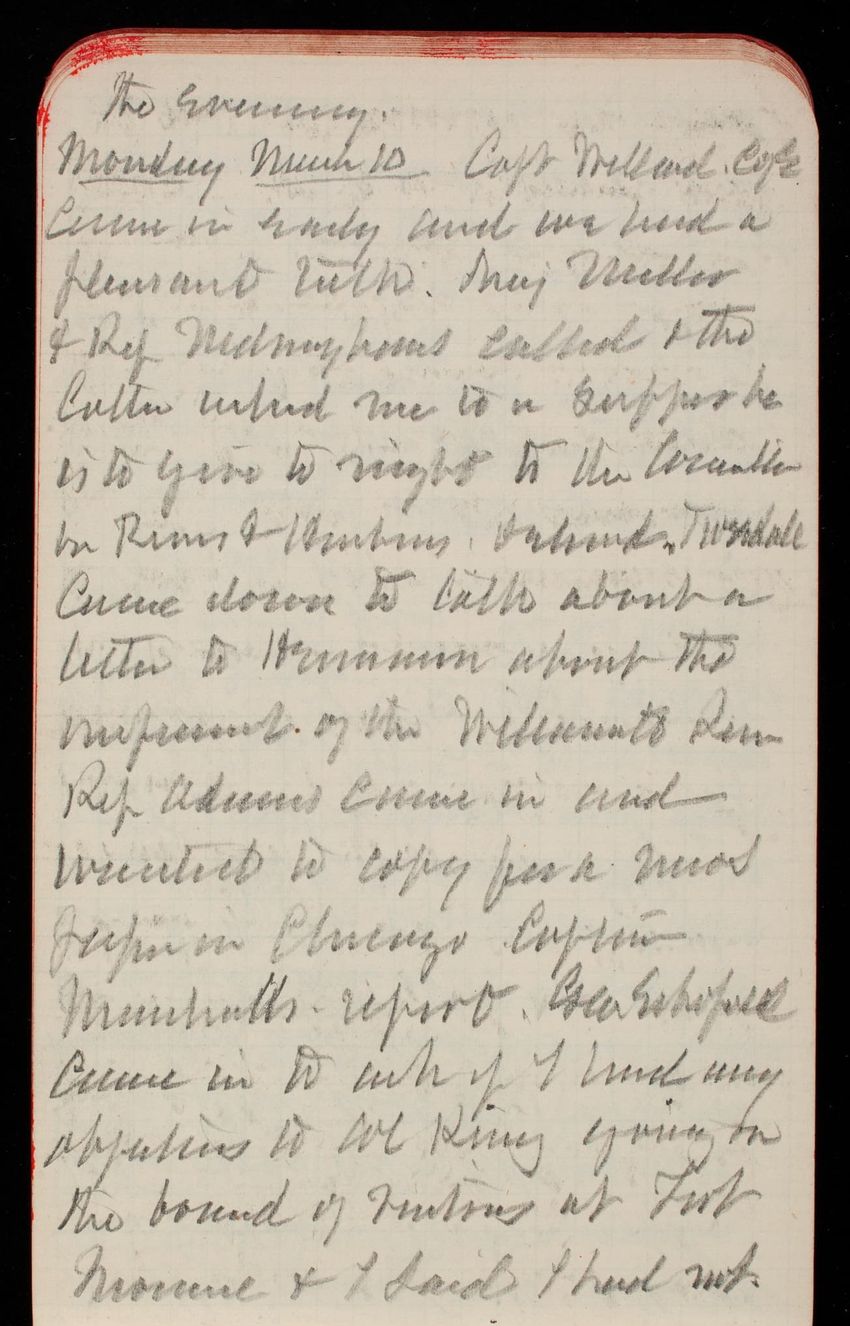 the evening.
Monday March 10 Capt Willard. CofE
Came in early and we had a
pleasant talk. Maj Miller
& Rep Niedringhaus called & the
latter asked me to a supper he
is to give to night to the Committee
on Rivers & Harbors. Tweedale
Came down to talk about a
letter to Hermann about the
improvement. of the Willamette River
Rep Adams came in and
wanted to copy for a news
paper in Chicago Captain
Marshalls report. Genl Schofield
Came in to ask if I had any
objections to Col King going on
the board of visitors at Fort
Monroe & I said I had not.